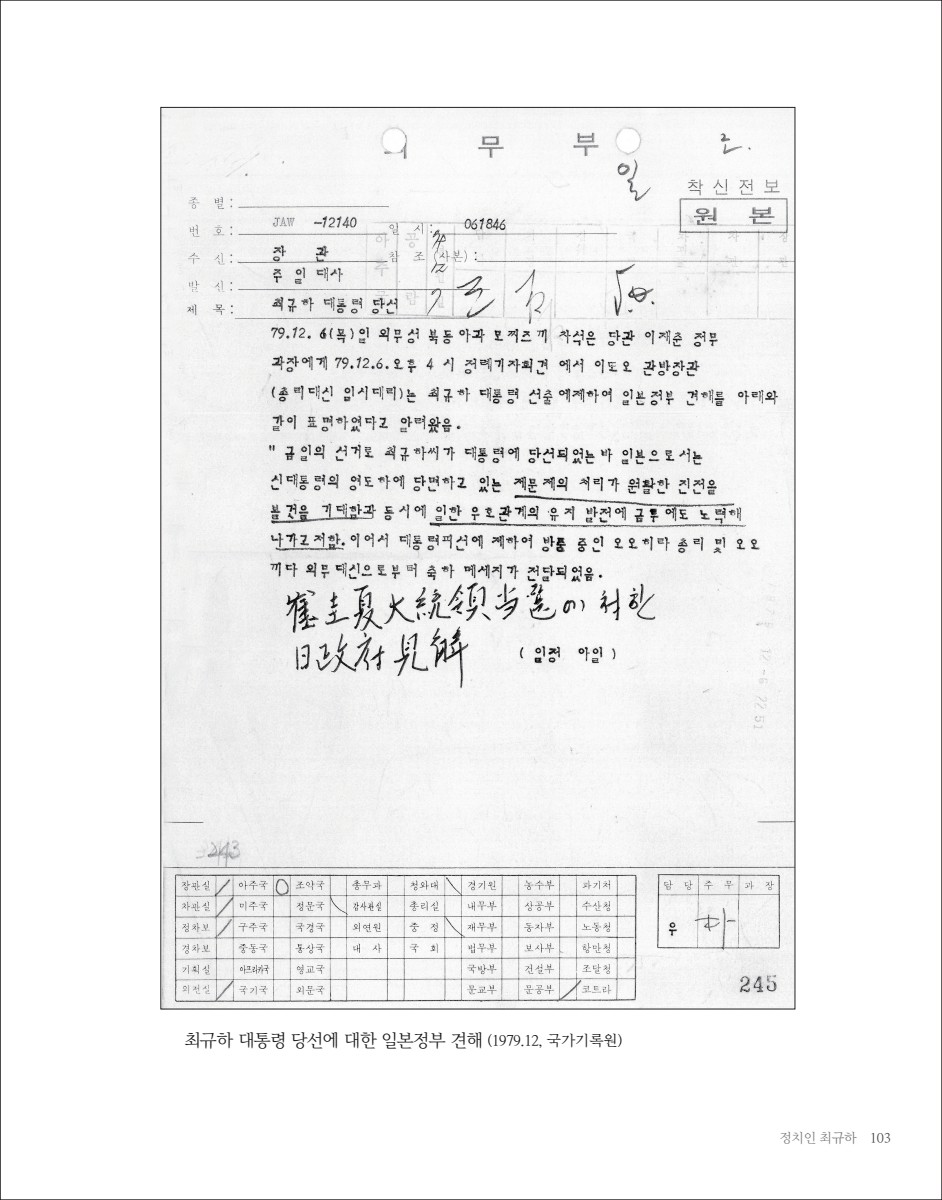 외 무 부
일
착신전보
원 본
종 별 :
번 호 : JAW -12140 일 시 : 061846
수 신 : 장 관 참 조 (사본) :
발 신 : 주 일 대사
제 목 : 최규하 대통령 당선
79.12. 6(목)일 외무성 북동아과 모찌즈끼 차석은 당관 이재춘 정무
과장에게 79.12.6.오후 4 시 정례기자회견 에서 이또오 관방장관
(총리대신 임시대리)는 최규하 대통령 선출에제하여 일본정부 견해를 아래와
같이 표명하였다고 알려왔음.
" 금일의 선거로 최규하씨가 대통령에 당선되었는바 일본으로서는
신대통령의 영도하에 당면하고 있는 제문제의 처리가 원활한 진전을
볼것을 기대함과 동시에 일한 우호관계의 유지 발전에 금후에도 노력해
나가고저함. 이어서 대통령피선에 제하여 방중 중인 오오히라 총리 및 오오
끼다 외무대신으로부터 축하 메세지가 전달되었음.
崔圭夏大統領当選에 처한
日政府見解 ( 일정 아일 )
12-6 22 51
243
장관실 아주국 조약국 총무과 청와대 경기원 농수부 과기처
차관실 미주국 정문국 감사관실 총리실 내무부 상공부 수산청
정차보 구주국 국경국 외연원 중 정 재무부 동자부 노동청
경차보 중동국 통상국 대 사 국 회 법무부 보사부 항만청
기획실 아프리카국 영교국 국방부 건설부 조달청
의전실 국기국 외문국 문교부 문공부 코트라
담 당 주 무 과 장
245
최규하 대통령 당선에 대한 일본정부 견해 (1979.12, 국가기록원)
정치인 최규하 103